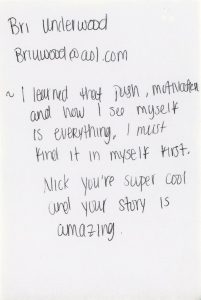 Bri Underwood
Briuwood@aol.com
~ I learned that push, motivation
and how I see myself
is everything, I must
find it in myself first.
Nick you're super cool
and your story is
amazing.